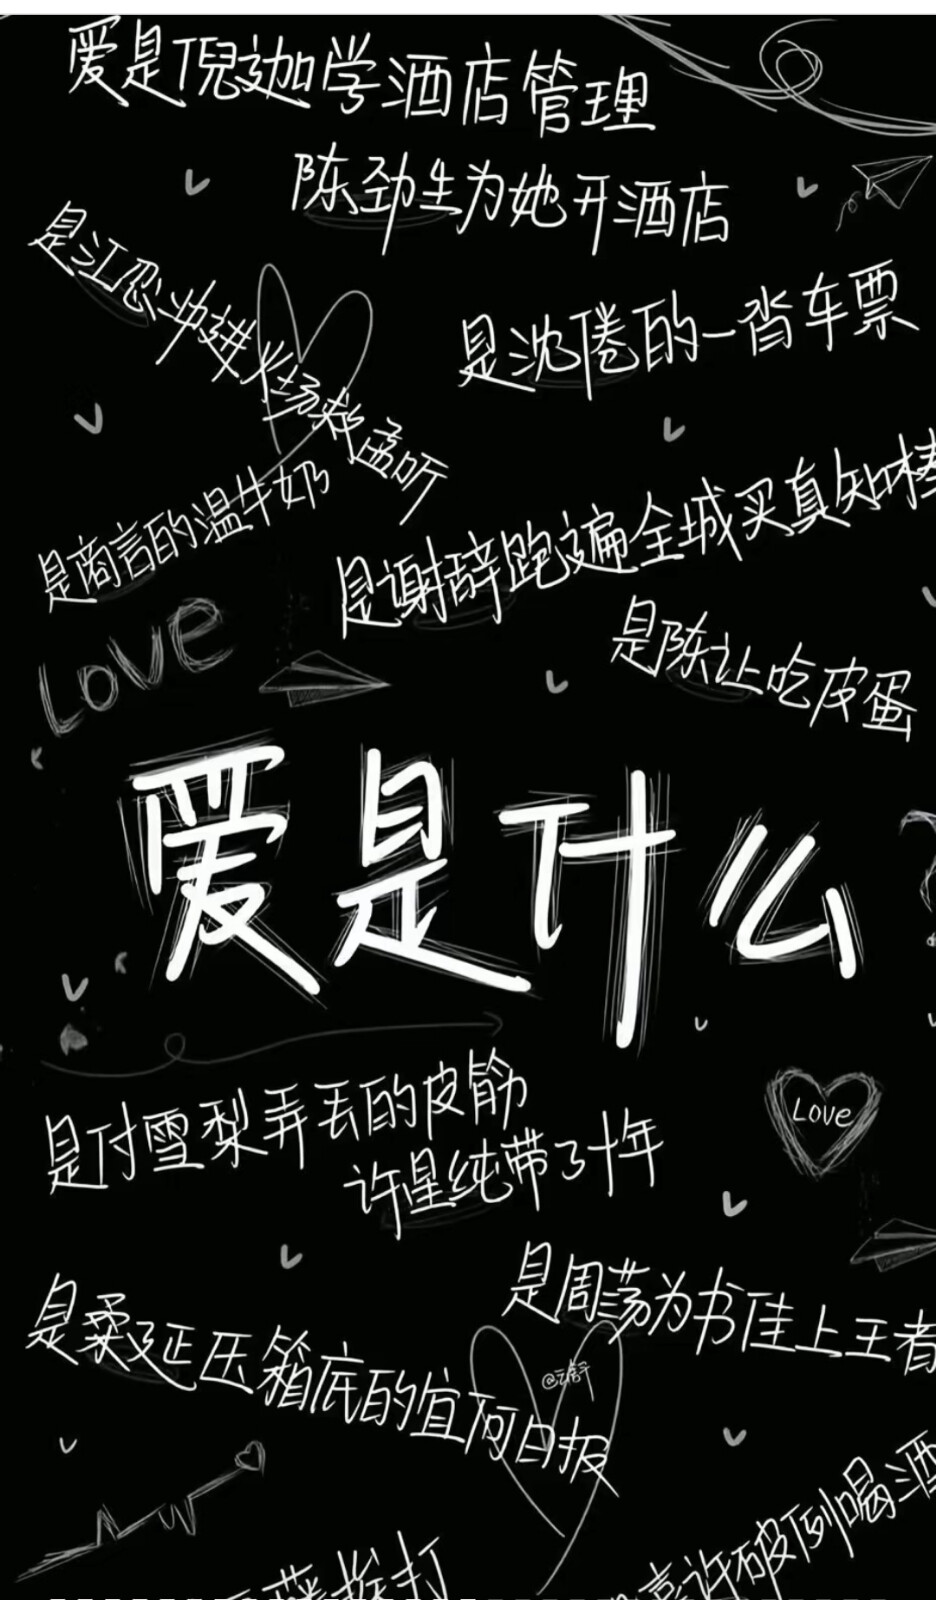 爱是倪迦学酒店管理
陈劲生为她开酒店
是江忍冲进火场救孟听
是沈倦的一沓车票
是商言的温牛奶
是谢辞跑遍全城买真知棒
是陈让吃皮蛋
Love
爱是什么
是付雪梨弄丢的皮筋
许星纯带了十年
Love
是周荡为书佳上王者
是柔延压箱底的宜何日报
挨打
许破例喝酒